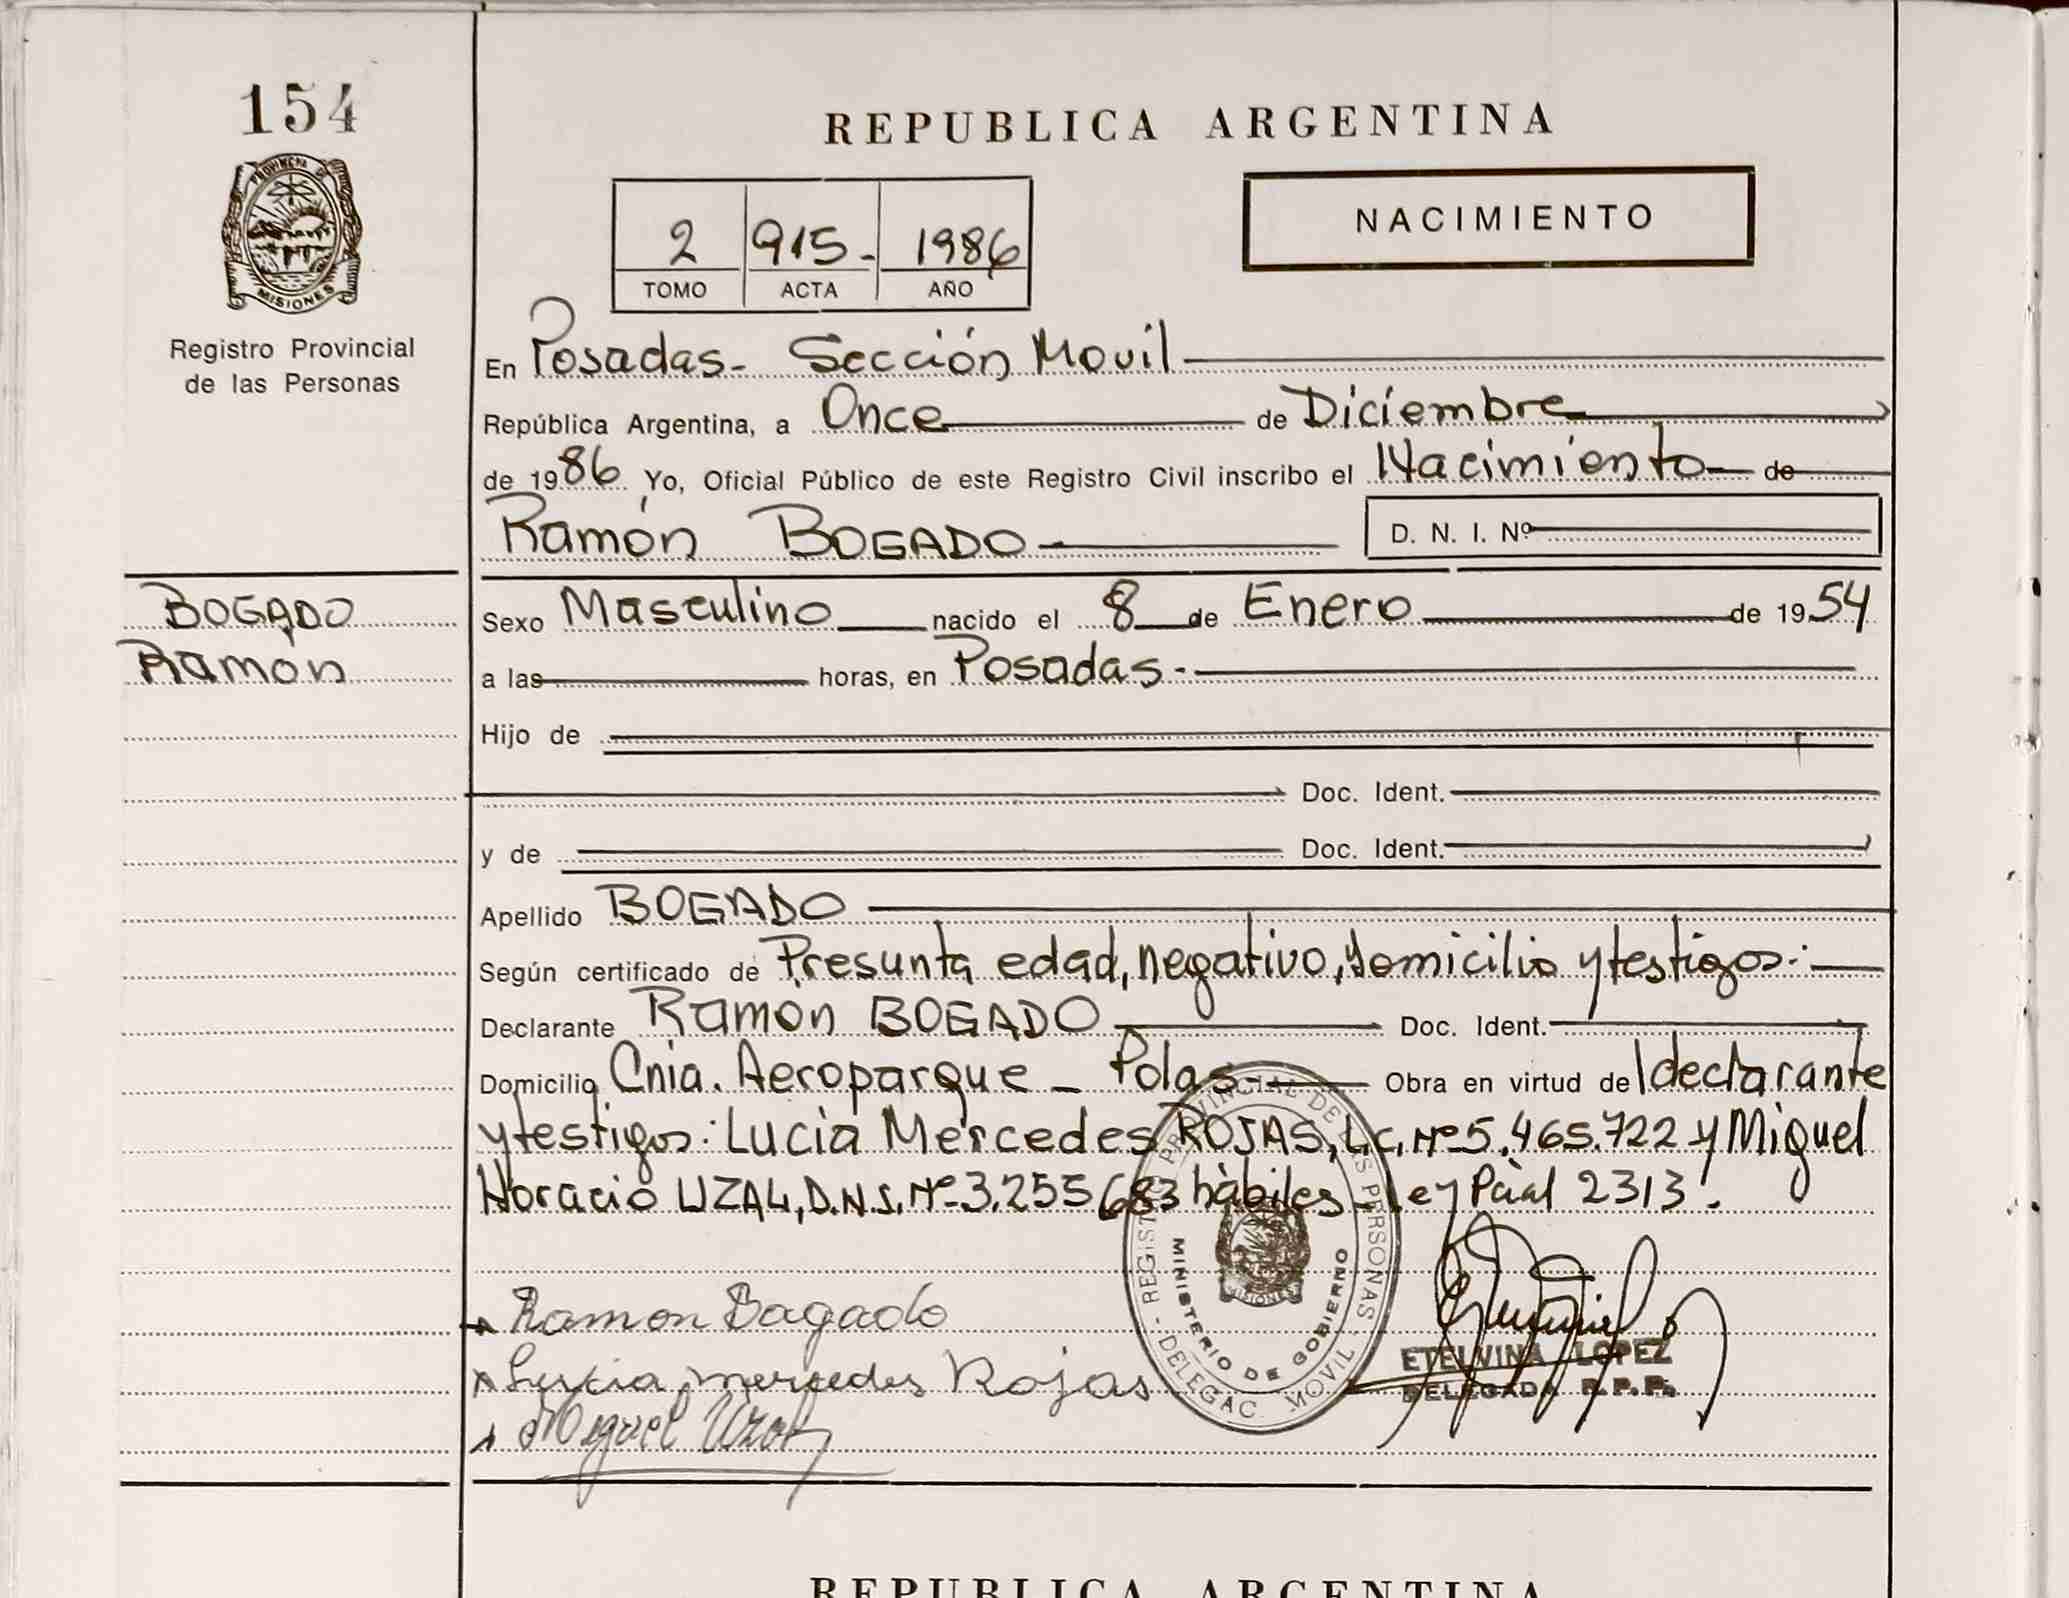 154
PROVINCIA DE
MISIONES
Registro Provincial
de las Personas
REPUBLICA ARGENTINA
NACIMIENTO
2 915- 1986
TOMO ACTA AÑO
En Posadas- Sección Movil
República Argentina, a Once de Diciembre
de 1986 Yo, Oficial Público de este Registro Civil inscribo el Nacimiento de
Ramón BOGADO D. N. I. Nº
BOGADO
Ramón
Sexo Masculino nacido el 8 de Enero de 1954
a las horas, en Posadas-
Hijo de
Doc. Ident.
y de Doc. Ident.
Apellido BOGADO
Según certificado de Presunta edad, negativo, domicilio y testigos.-
Declarante Ramón BOGADO Doc. Ident.
Domicilio Cnia. Aeroparque - Pdas- Obra en virtud de declarante
y testigos: Lucia Mercedes ROJAS, L.C. Nº 5.465.722 y Miguel
Horacio UZAL, D.N.I. Nº 3.255683 hàbiles Ley Pcial 2313.
Ramon Bagado
Lucia mercedes Rojas
Miguel Uzal
REGISTRO PROVINCIAL DE LAS PERSONAS - DELEGAC. MOVIL -
MINISTERIO DE GOBIERNO
MISIONES
ETELVINA LOPEZ
DELEGADA R.P.P.
REPUBLICA ARGENTINA